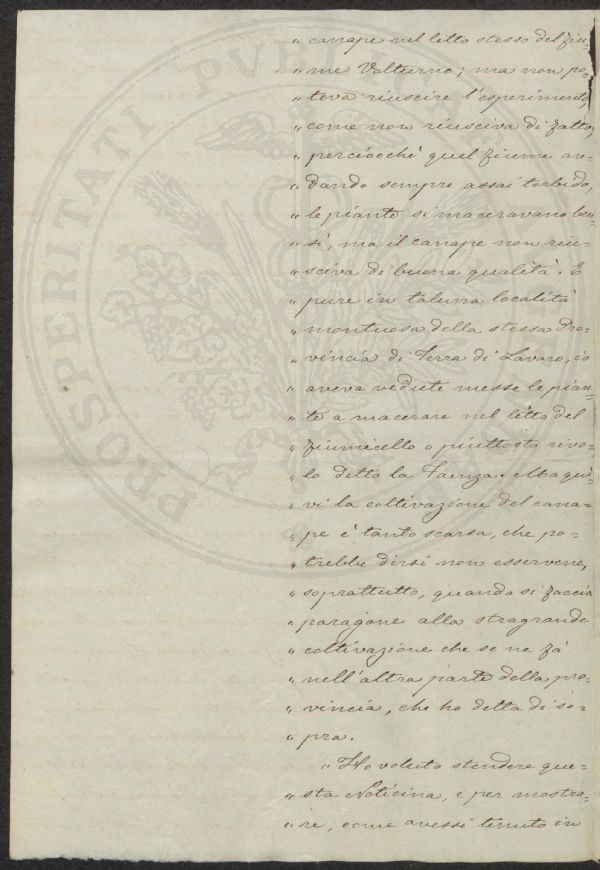 „ canape nel letto stesso del fiu=
„ me Volturno; ma non po=
„ teva riuscire l'esperimento,
„ come non riusciva di fatto,
„ perciocchè quel fiume an=
„ dando sempre assai torbido,
„ le piante si maceravano ben=
„ sì, ma il canape non riu=
„ sciva di buona qualità. E
„ pure in taluna località
„ montuosa della stessa Pro=
„ vincia di Terra di Lavoro, io
„ aveva vedute messe le pian=
„ te a macerare nel letto del
„ fiumicello o piuttosto rivo=
„ lo detto la Faenza. Ma qui=
„ vi la coltivazione del cana=
„ pe è tanto scarsa, che po=
„ trebbe dirsi non esservene,
„ soprattutto, quando si faccia
„ paragone alla stragrande
„ coltivazione che se ne fà
„ nell'altra parte della pro=
„ vincia, che ho detta di so=
„ pra.
„ Ho voluto stendere que=
„ sta Noticina, e per mostra=
„ re, come avessi tenuto in
PROSPERITATI PUBLICAE